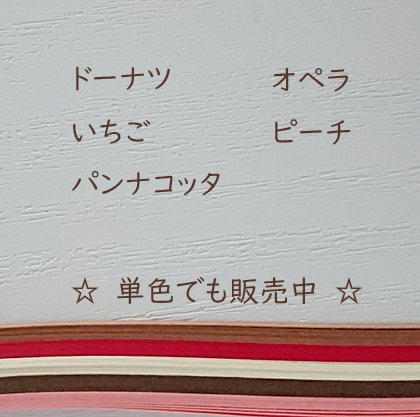 ドーナツ オペラ
いちご ピーチ
パンナコッタ
☆ 単色でも販売中 ☆